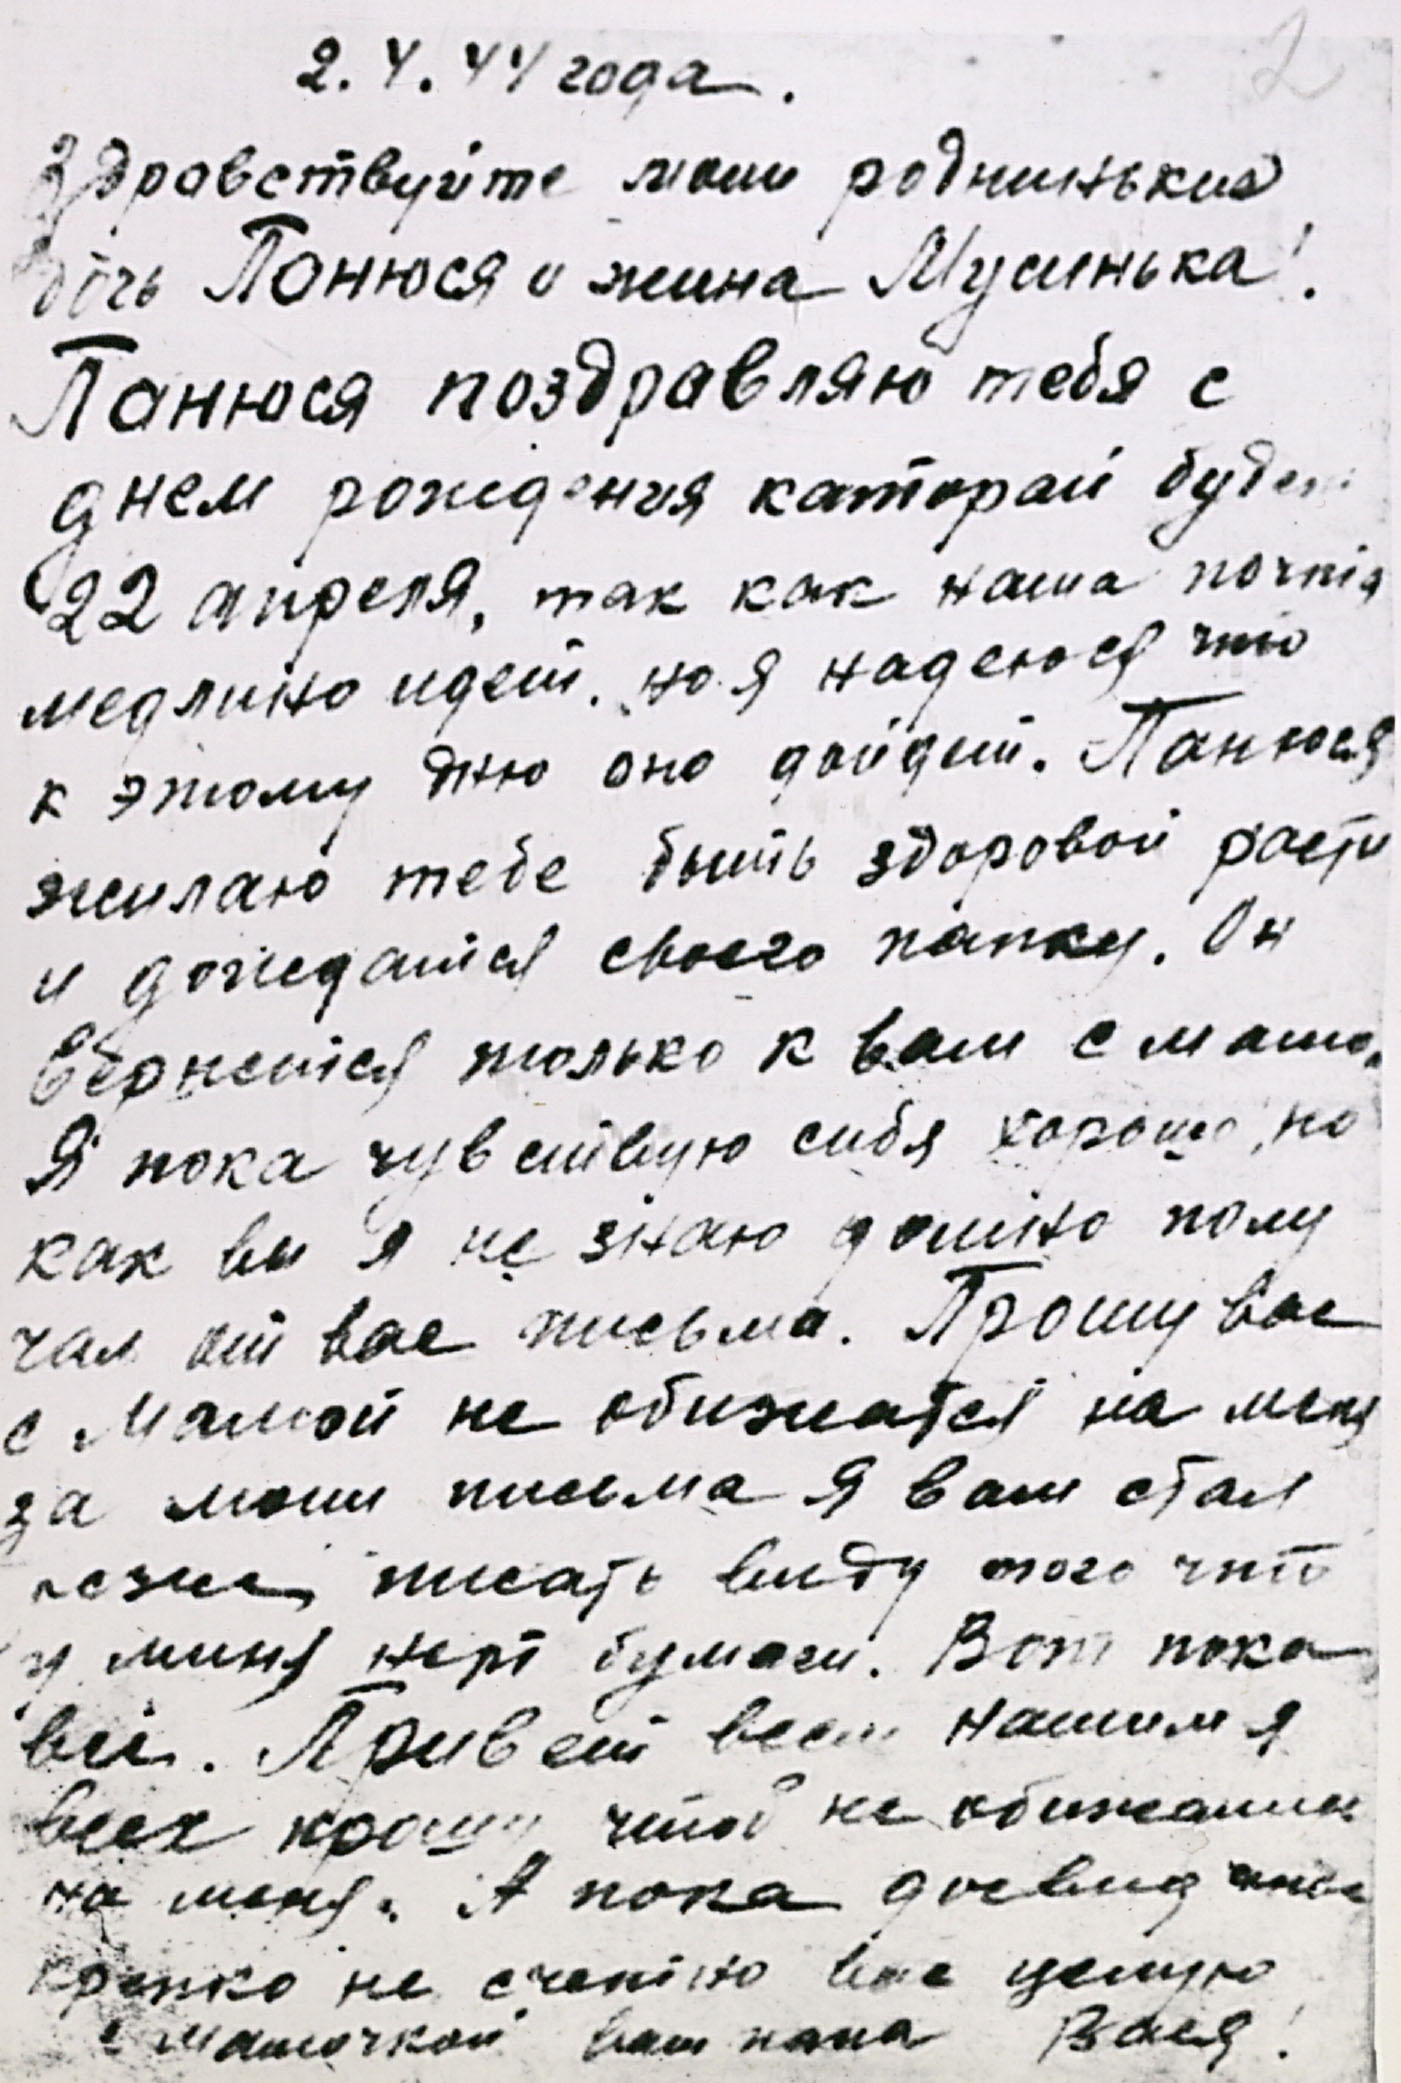 2
2.4.44 года.
Здравствуйте мои роднинькия
дочь Панюся и жина Мусинька!
Панюся поздравляю тебя с
днем рождения каторай будет
22 апреля, так как наша почта
медлино идет. но я надеюся что
к этому дню оно дойдет. Панюся
жилаю тебе быть здоровой расти
и дождатся своего папку. Он
вернется только к вам с мамо.
Я пока чувствую сибя хорошо, но
как вы я не знаю домно полу
чал от вас письма. Прошу вас
с мамой не обижатся на меня
за мои письма я вам стал
писать виду того что
у миня нет бумаги. Вот пока
всё. Привет всем нашим я
всех прошу чтоб не обижались
на меня. А пока досвидания
крепко не счетно вас целую
с мамочкой ваш папа Вася!